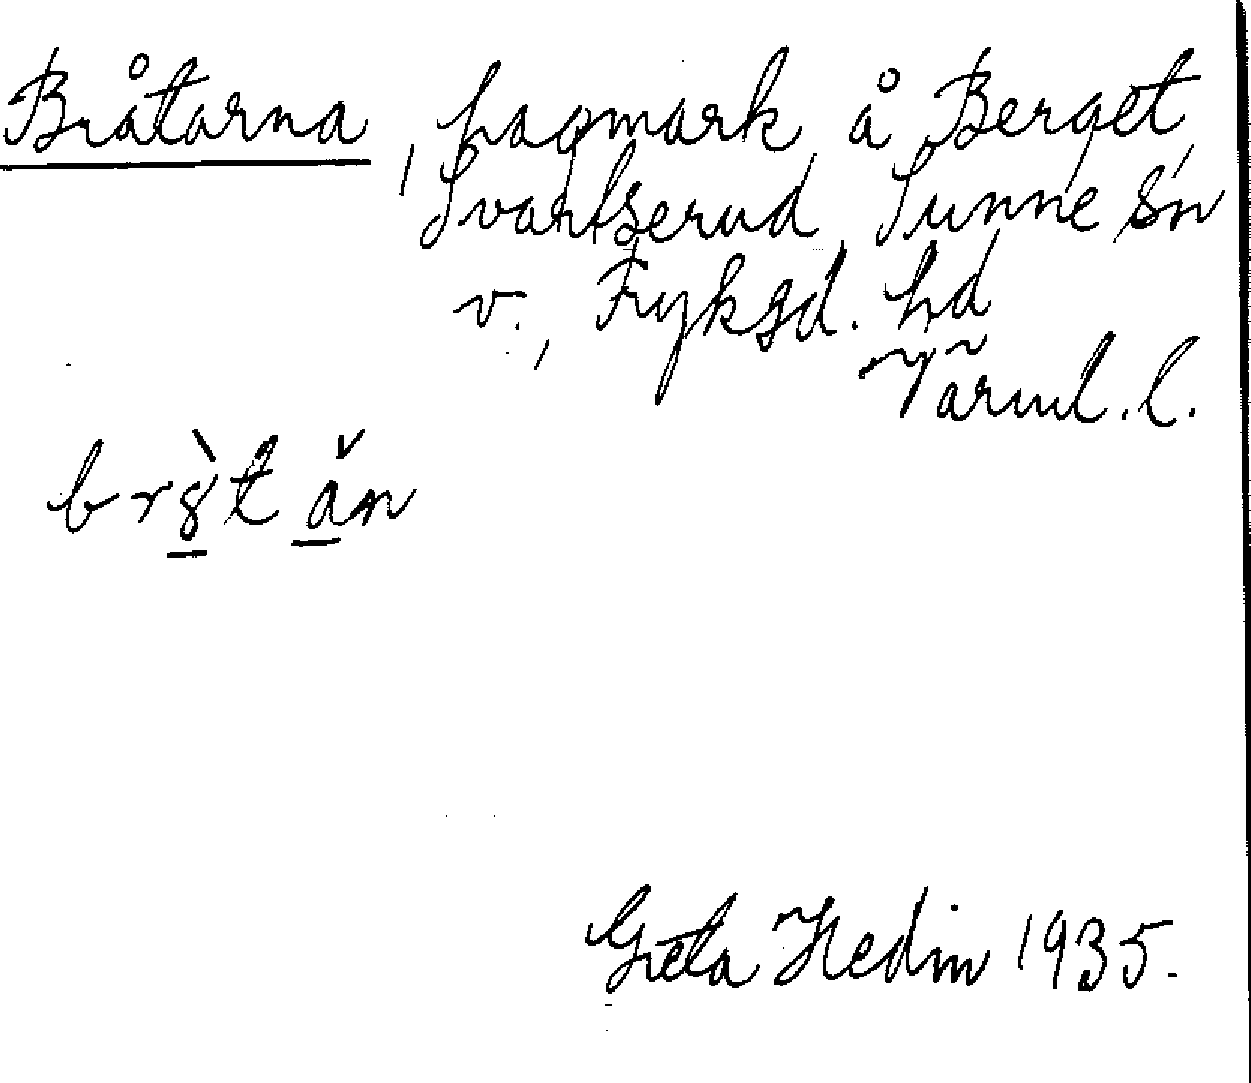 Bråtarna, hagmark å Berget,
Svartserud, Sunne sn
v., Fryksd. hd
Värml. l.
br8̀t ǎn
Greta Hedin 1935.